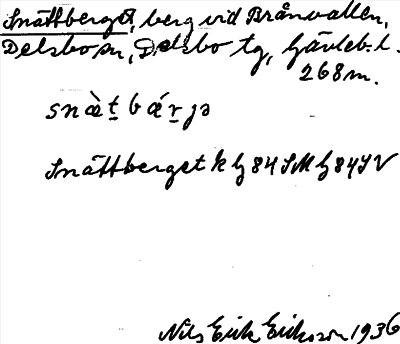 Snättberget, berg vid Brånvallen,
Delsbo sn, Delsbo tg, Gävleb. l.
268 m.
snæ̀t bǽrjə
Snättberget k bg 84 SM bg 84 SV
Nils Erik Eriksson 1936